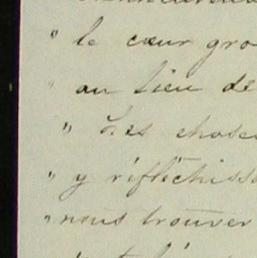 " le cœur gro
au lieu de
" Les chose
" y réfléchiss
" nous trouver